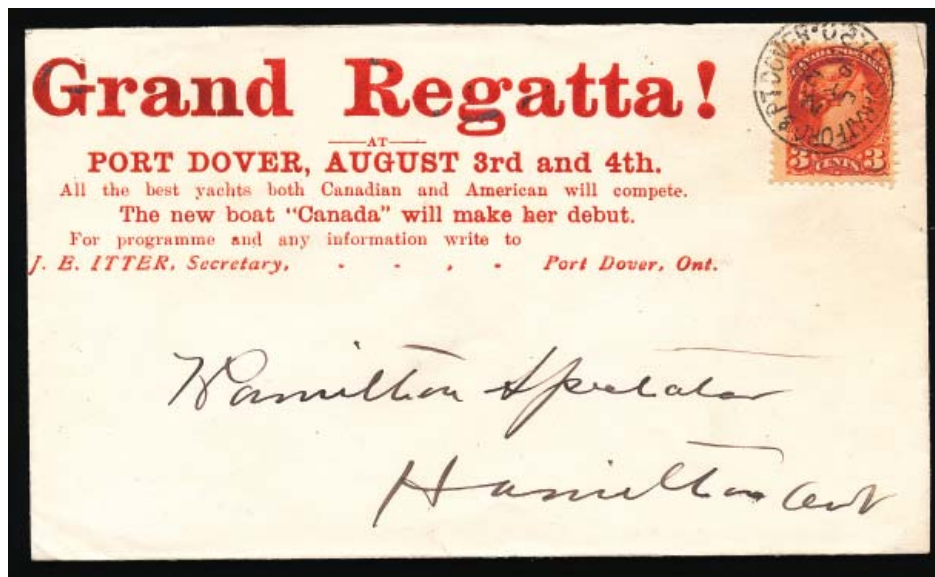 Grand Regatta!
AT
PORT DOVER, AUGUST 3rd and 4th.
All the best yachts both Canadian and American will compete.
The new boat "Canada" will make her debut.
For programme and any information write to
J. E. ITTER, Secretary, - - , - Port Dover, Ont.
CANADA POSTAGE
3 CENTS 3
PT DOVER
Hamilton Spectator
Hamilton Ont